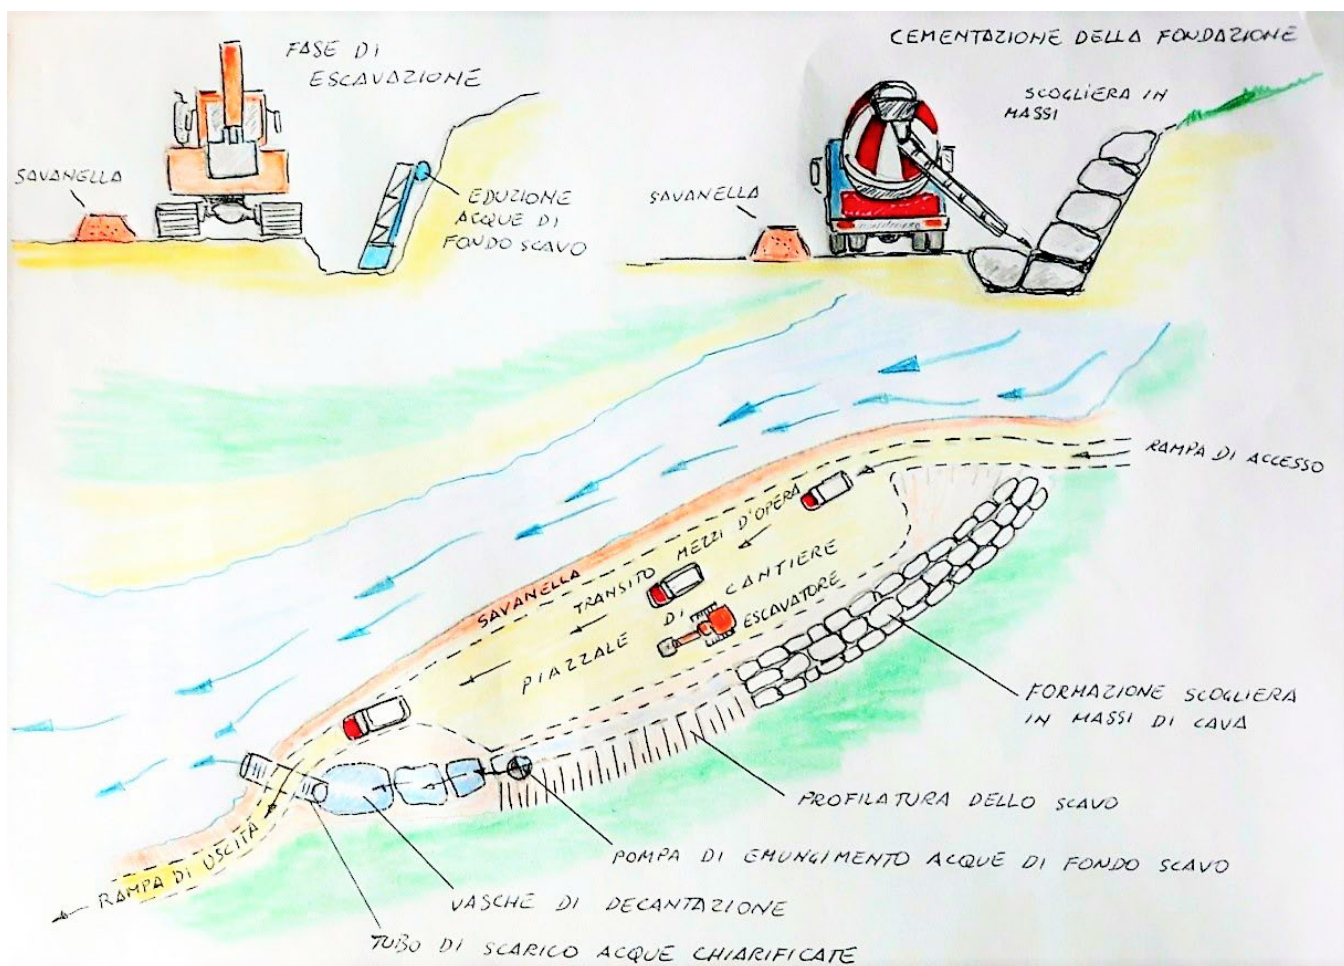 FASE DI
ESCAVAZIONE
SAVANELLA
EDUZIONE
ACQUE DI
FONDO SCAVO
CEMENTAZIONE DELLA FONDAZIONE
SCOGLIERA IN
MASSI
SAVANELLA
RAMPA DI ACCESSO
TRANSITO MEZZI D'OPERA
SAVANELLA
PIAZZALE DI CANTIERE
ESCAVATORE
FORMAZIONE SCOGLIERA
IN MASSI DI CAVA
PROFILATURA DELLO SCAVO
POMPA DI EMUNGIMENTO ACQUE DI FONDO SCAVO
RAMPA DI USCITA
VASCHE DI DECANTAZIONE
TUBO DI SCARICO ACQUE CHIARIFICATE